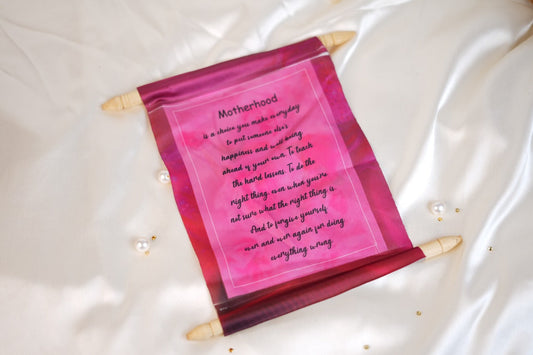 Motherhood
is a choice you make everyday
to put someone else's
happiness and well-being
ahead of your own. To teach
the hard lessons. To do the
right thing even when you're
not sure what the right thing is.
And to forgive yourself
over and over again for doing
everything wrong.